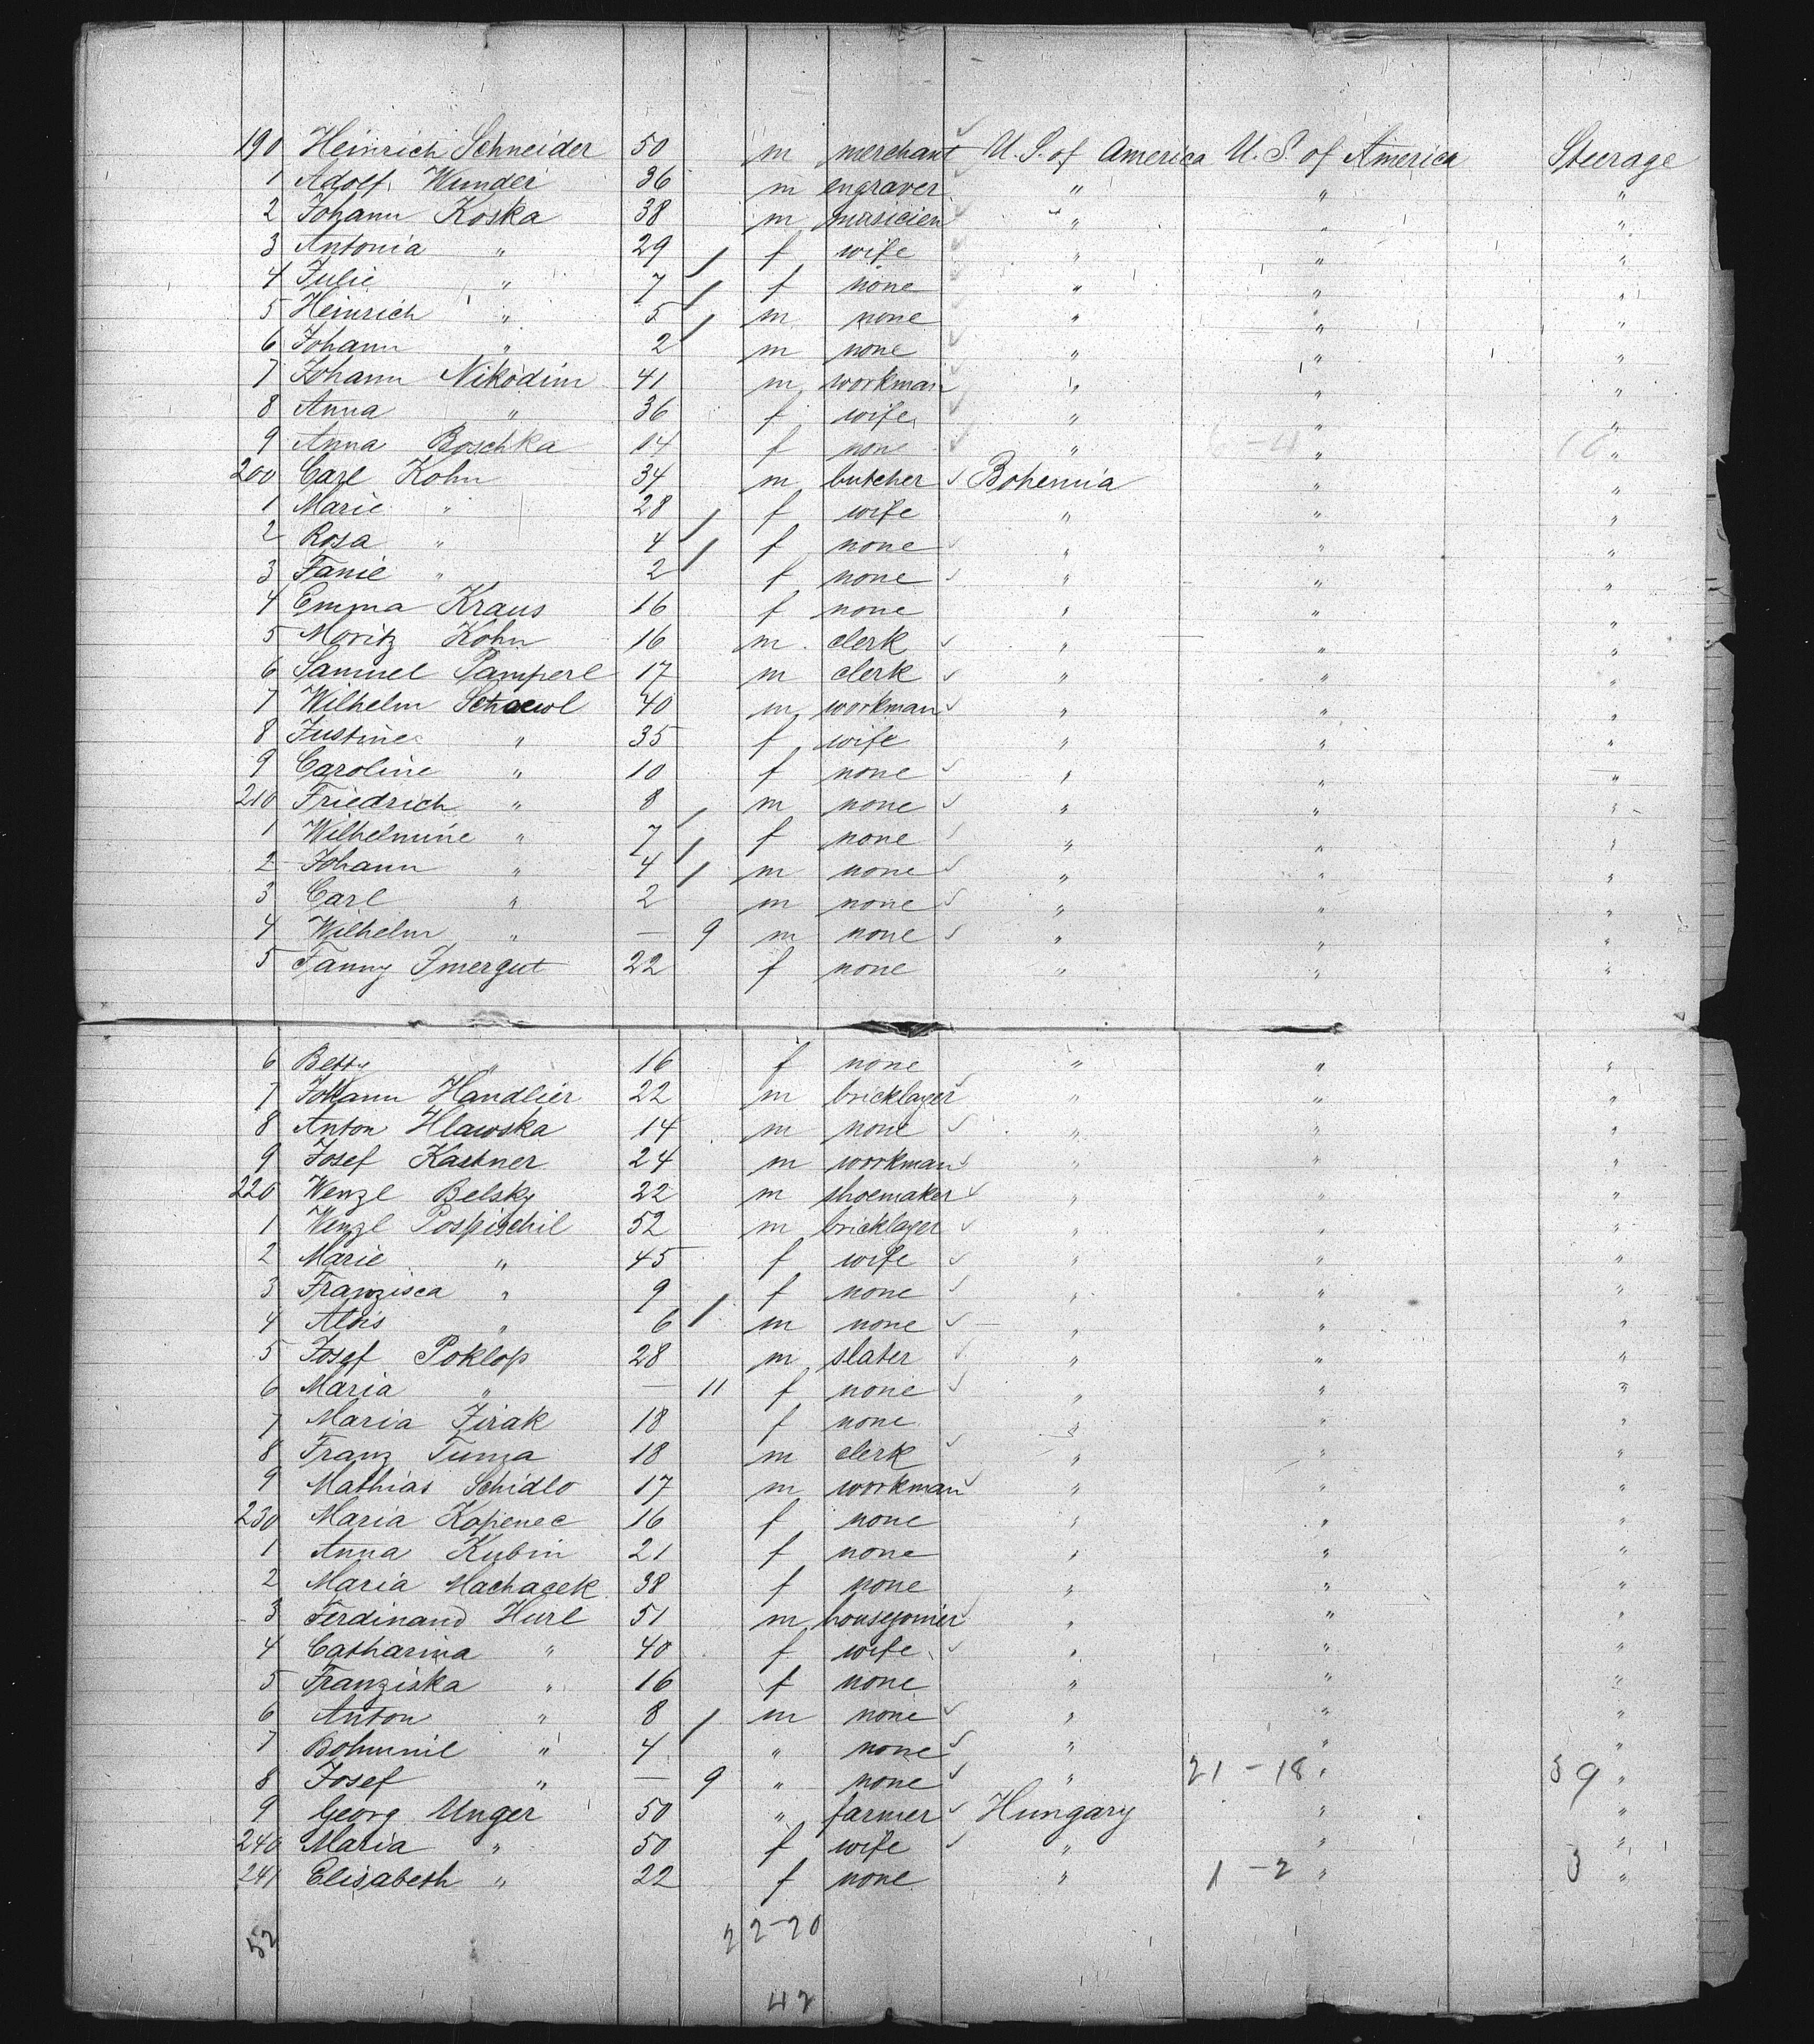 190 Heinrich Schneider 50 m merchant U. S. of America U. S. of America Steerage
1 Adolf Wunder 36 m engraver " " "
2 Johann Koska 38 m musicien " " "
3 Antonia " 29 f wife " " "
4 Julie " 7 f none " " "
5 Heinrich " 5 m none " " "
6 Johann " 2 m none " " "
7 Johann Nikodim 41 m workman " " "
8 Anna " 36 f wife " " "
9 Anna Boschka 14 f none " 6 - 4 " 10 "
200 Carl Kohn 34 m butcher Bohemia " "
1 Marie " 28 f wife " " "
2 Rosa " 4 f none " " "
3 Fanie " 2 f none " " "
4 Emma Kraus 16 f none " " "
5 Moritz Kohn 16 m clerk " " "
6 Samuel Pamperl 17 m clerk " " "
7 Wilhelm 40 m workman " " "
8 Justine " 35 f wife " " "
9 Caroline " 10 f none " " "
210 Friedrich " 8 m none " " "
1 Wilhelmine " 7 f none " " "
2 Johann " 4 m none " " "
3 Carl " 2 m none " " "
4 Wilhelm " — 9 m none " " "
5 Fanny Imergut 22 f none " " "
6 Betty " 16 f none " " "
7 Johann Handlier 22 m bricklayer " " "
8 Anton Hlawska 14 m none " " "
9 Josef Kastner 24 m workman " " "
220 Wenzl Belsky 22 m shoemaker " " "
1 Wenzl Pospischil 52 m bricklayer " " "
2 Marie " 45 f wife " " "
3 Franzisca " 9 f none " " "
4 Alois " 6 m none " " "
5 Josef Poklop 28 m slater " " "
6 Maria " — 11 f none " " "
7 Maria Jirak 18 f none " " "
8 Franz Tuma 18 m clerk " " "
9 Mathias Schidlo 17 m workman " " "
230 Maria Kopenec 16 f none " " "
1 Anna Kubin 21 f none " " "
2 Maria Machacek 38 f none " " "
3 Ferdinand Hurl 51 m " " "
4 Catharina " 40 f wife " " "
5 Franziska " 16 f none " " "
6 Anton " 8 m none " " "
7 Bohumil " 4 " none " " "
8 Josef " — 9 " none " 21 - 18 " 39 "
9 Georg Unger 50 " farmer Hungary " "
240 Maria " 50 f wife " " "
241 Elisabeth " 22 f none " 1 - 2 " 3 "
52 2 2-20
42